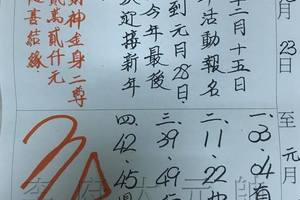 月23日
二月十五日
活動報名
到元月28日
今年最後
迎接新年
財神金身二尊
貳萬貳仟元
喜結緣
至 元月
一、03、04、首
二、11、22
三、39、49
四、42、45